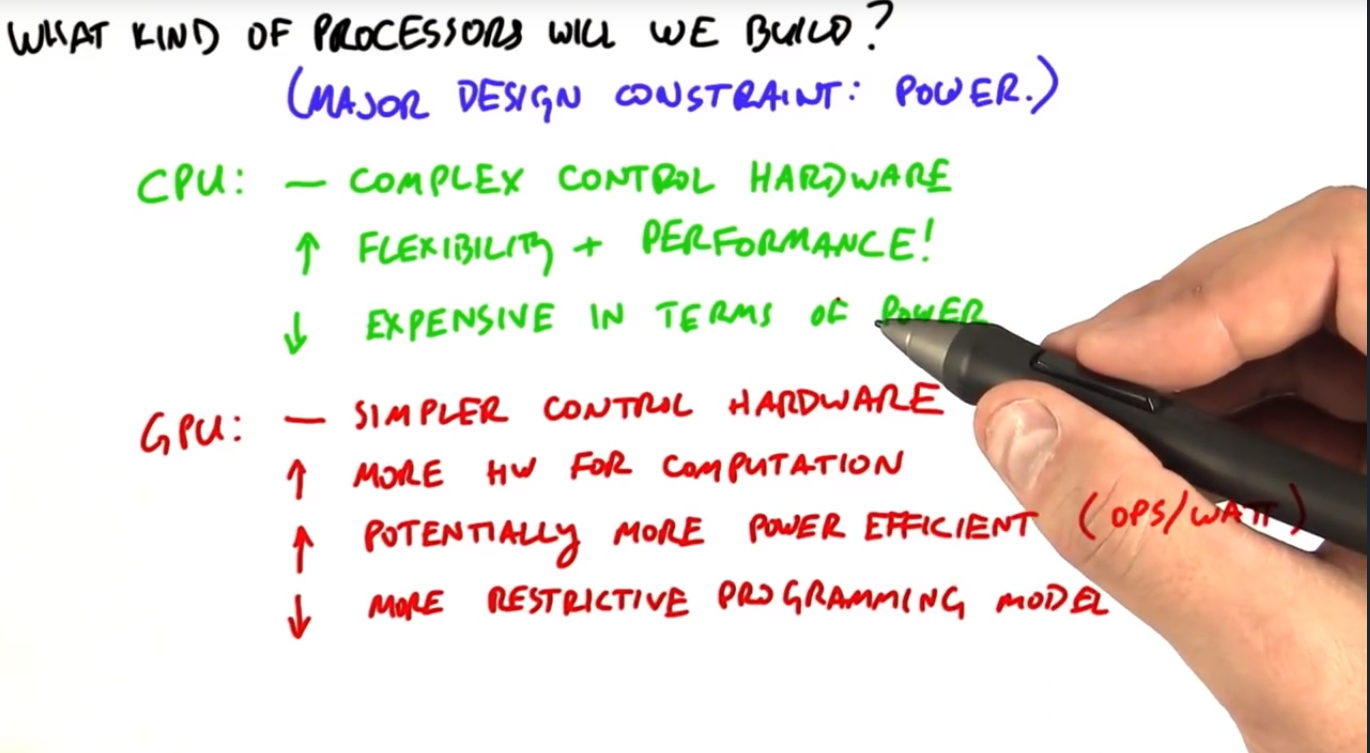 WHAT KIND OF PROCESSORS WILL WE BUILD?
(MAJOR DESIGN CONSTRAINT: POWER.)
CPU: — COMPLEX CONTROL HARDWARE
↑ FLEXIBILITY + PERFORMANCE!
↓ EXPENSIVE IN TERMS OF POWER
GPU: — SIMPLER CONTROL HARDWARE
↑ MORE HW FOR COMPUTATION
↑ POTENTIALLY MORE POWER EFFICIENT (OPS/WATT)
↓ MORE RESTRICTIVE PROGRAMMING MODEL